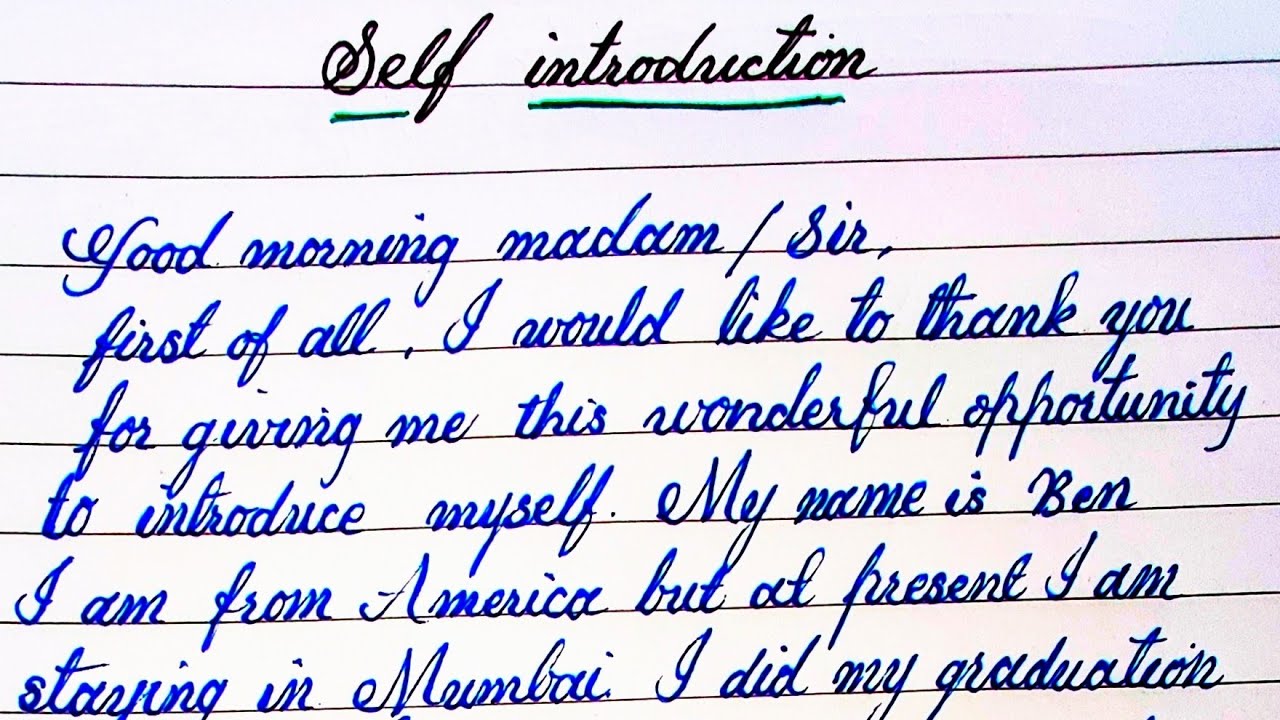 Self introduction
Good morning madam / Sir,
first of all, I would like to thank you
for giving me this wonderful opportunity
to introduce myself. My name is Ben
I am from America but at present I am
staying in Mumbai. I did my graduation